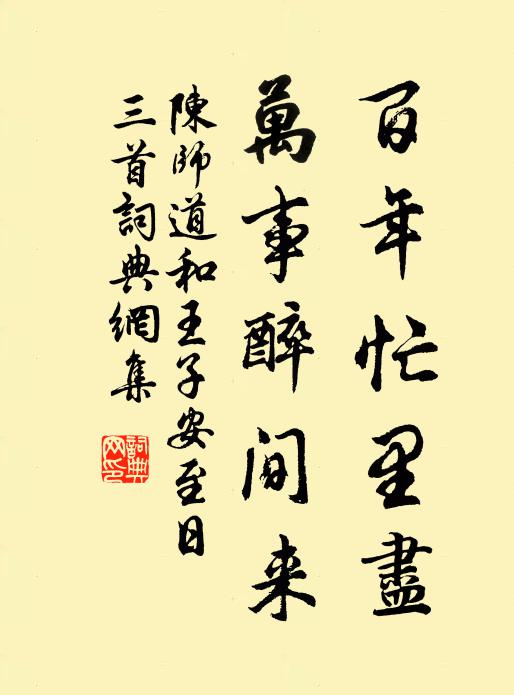 百年忙里盡
萬事醉间来
陳師道和王子安至日
三首詞典網集
詞典网印